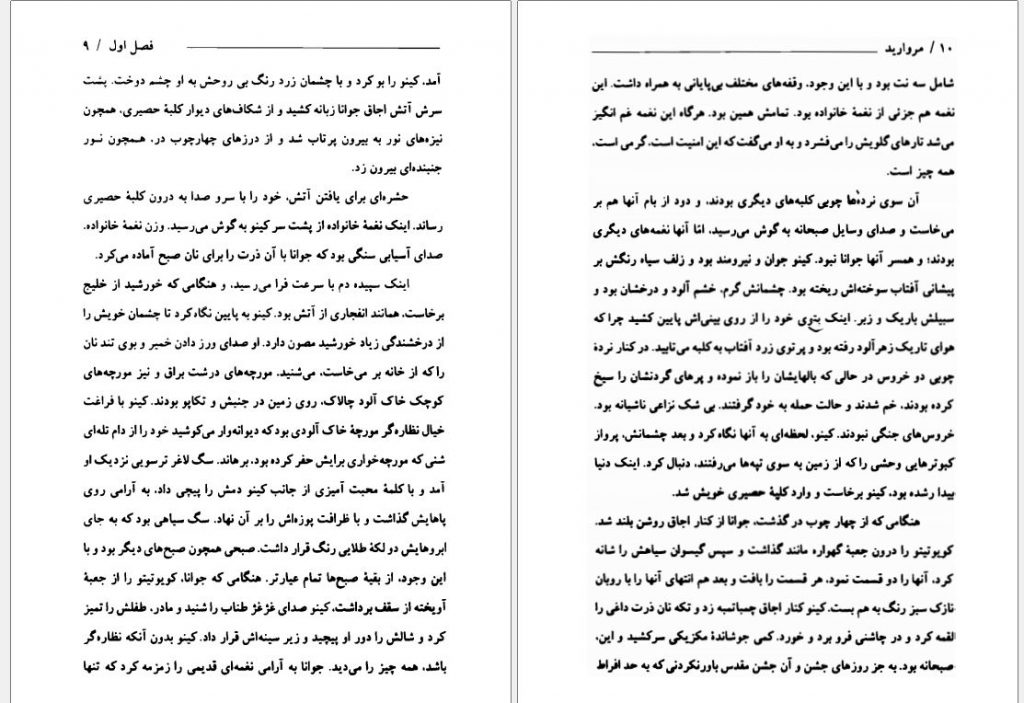 فصل اول / ۹
آمد، کینو را بو کرد و با چشمان زرد رنگ بی روحش به او چشم دوخت. پشت
سرش آتش اجاق جوانا زبانه کشید و از شکاف‌های دیوار کلبهٔ حصیری، همچون
نیزه‌های نور به بیرون پرتاب شد و از درزهای چهارچوب در، همچون نور
جنبنده‌ای بیرون زد.
حشره‌ای برای یافتن آتش، خود را با سرو صدا به درون کلبهٔ حصیری
رساند. اینک نغمهٔ خانواده از پشت سر کینو به گوش می‌رسید. وزن نغمهٔ خانواده،
صدای آسیابی سنگی بود که جوانا با آن ذرت را برای نان صبح آماده می‌کرد.
اینک سپیده دم با سرعت فرا می‌رسید، و هنگامی که خورشید از خلیج
برخاست، همانند انفجاری از آتش بود. کینو به پایین نگاه کرد تا چشمان خویش را
از درخشندگی زیاد خورشید مصون دارد. او صدای ورز دادن خمیر و بوی تند نان
را که از خانه بر می‌خاست، می‌شنید. مورچه‌های درشت براق و نیز مورچه‌های
کوچک خاک آلود چالاک، روی زمین در جنبش و تکاپو بودند. کینو با فراغت
خیال نظاره‌گر مورچهٔ خاک آلودی بود که دیوانه‌وار می‌کوشید خود را از دام تله‌ای
شنی که مورچه‌خواری برایش حفر کرده بود، برهاند. سگ لاغر ترسویی نزدیک او
آمد و با کلمهٔ محبت آمیزی از جانب کینو دمش را پیچی داد، به آرامی روی
پاهایش گذاشت و با ظرافت پوزه‌اش را بر آن نهاد. سگ سیاهی بود که به جای
ابروهایش دو لکهٔ طلایی رنگ قرار داشت. صبحی همچون صبح‌های دیگر بود و با
این وجود، از بقیهٔ صبح‌ها تمام عیارتر. هنگامی که جوانا، کویوتیتو را از جعبهٔ
آویخته از سقف برداشت، کینو صدای غژغژ طناب را شنید و مادر، طفلش را تمیز
کرد و شالش را دور او پیچید و زیر سینه‌اش قرار داد. کینو بدون آنکه نظاره‌گر
باشد، همه چیز را می‌دید. جوانا به آرامی نغمه‌ای قدیمی را زمزمه کرد که تنها
۱۰ / مروارید
شامل سه نت بود و با این وجود، وقفه‌های مختلف بی‌پایانی به همراه داشت. این
نغمه هم جزئی از نغمهٔ خانواده بود. تمامش همین بود. هرگاه این نغمه غم انگیز
می‌شد تارهای گلویش را می‌فشرد و به او می‌گفت که این امنیت است، گرمی است،
همه چیز است.
آن سوی نرده‌ها چوبی کلبه‌های دیگری بودند، و دود از بام آنها هم بر
می‌خاست و صدای وسایل صبحانه به گوش می‌رسید، امّا آنها نغمه‌های دیگری
بودند؛ و همسر آنها جوانا نبود. کینو جوان و نیرومند بود و زلف سیاه رنگش بر
پیشانی آفتاب سوخته‌اش ریخته بود. چشمانش گرم، خشم آلود و درخشان بود و
سبیلش باریک و زبر. اینک پتوی خود را از روی بینی‌اش پایین کشید چرا که
هوای تاریک زهرآلود رفته بود و پرتوی زرد آفتاب به کلبه می‌تابید. در کنار نردهٔ
چوبی دو خروس در حالی که بالهایشان را باز نموده و پرهای گردنشان را سیخ
کرده بودند، خم شدند و حالت حمله به خود گرفتند. بی شک نزاعی ناشیانه بود.
خروس‌های جنگی نبودند. کینو، لحظه‌ای به آنها نگاه کرد و بعد چشمانش، پرواز
کبوترهایی وحشی را که از زمین به سوی تپه‌ها می‌رفتند، دنبال کرد. اینک دنیا
بیدار شده بود، کینو برخاست و وارد کلبهٔ حصیری خویش شد.
هنگامی که از چهار چوب در گذشت، جوانا از کنار اجاق روشن بلند شد.
کویوتیتو را درون جعبهٔ گهواره مانند گذاشت و سپس گیسوان سیاهش را شانه
کرد، آنها را دو قسمت نمود، هر قسمت را بافت و بعد هم انتهای آنها را با روبان
نازک سبز رنگ به هم بست. کینو کنار اجاق چمباتمه زد و تکه نان ذرت داغی را
لقمه کرد و در چاشنی فرو برد و خورد. کمی جوشاندهٔ مکزیکی سرکشید و این،
صبحانه بود. به جز روزهای جشن و آن جشن مقدس باورنکردنی که به حد افراط